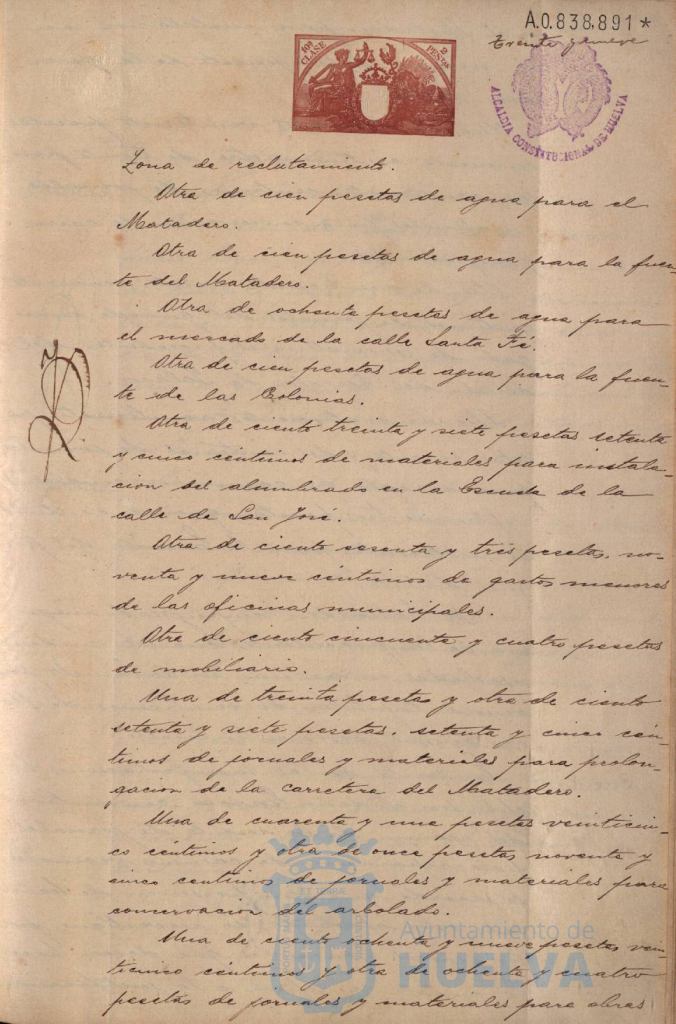 A.0.838,891*
Treinta y nueve
10ª CLASE
2 PESETAS
ALCALDIA CONSTITUCIONAL DE HUELVA
Zona de reclutamiento.
Otra de cien pesetas de agua para el
Matadero.
Otra de cien pesetas de agua para la fuen-
te del Matadero.
Otra de ochenta pesetas de agua para
el mercado de la calle Santa Fé.
Otra de cien pesetas de agua para la fuen-
te de las Colonias.
Otra de ciento treinta y siete pesetas setenta
y cinco céntimos de materiales para instala-
cion del alumbrado en la Escuela de la
calle de San José.
Otra de ciento sesenta y tres pesetas, no-
venta y nueve céntimos de gastos menores
de las oficinas municipales.
Otra de ciento cincuenta y cuatro pesetas
de mobiliario.
Una de treinta pesetas y otra de ciento
setenta y siete pesetas, setenta y cinco cén-
timos de jornales y materiales para prolon-
gacion de la carretera del Matadero.
Una de cuarenta y una pesetas veinticin-
co céntimos y otra de once pesetas noventa y
cinco centimos de jornales y materiales para
conservacion del arbolado.
Una de ciento ochenta y nueve pesetas vein-
ticinco céntimos y otra de ochenta y cuatro
pesetas de jornales y materiales para obras
Ayuntamiento de
HUELVA